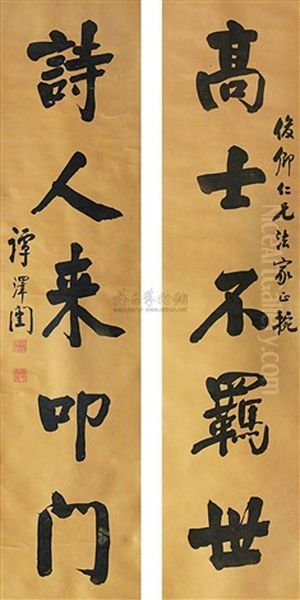 俊卿仁兄法家正挽
高士不羈世
詩人来叩门
譚澤闓